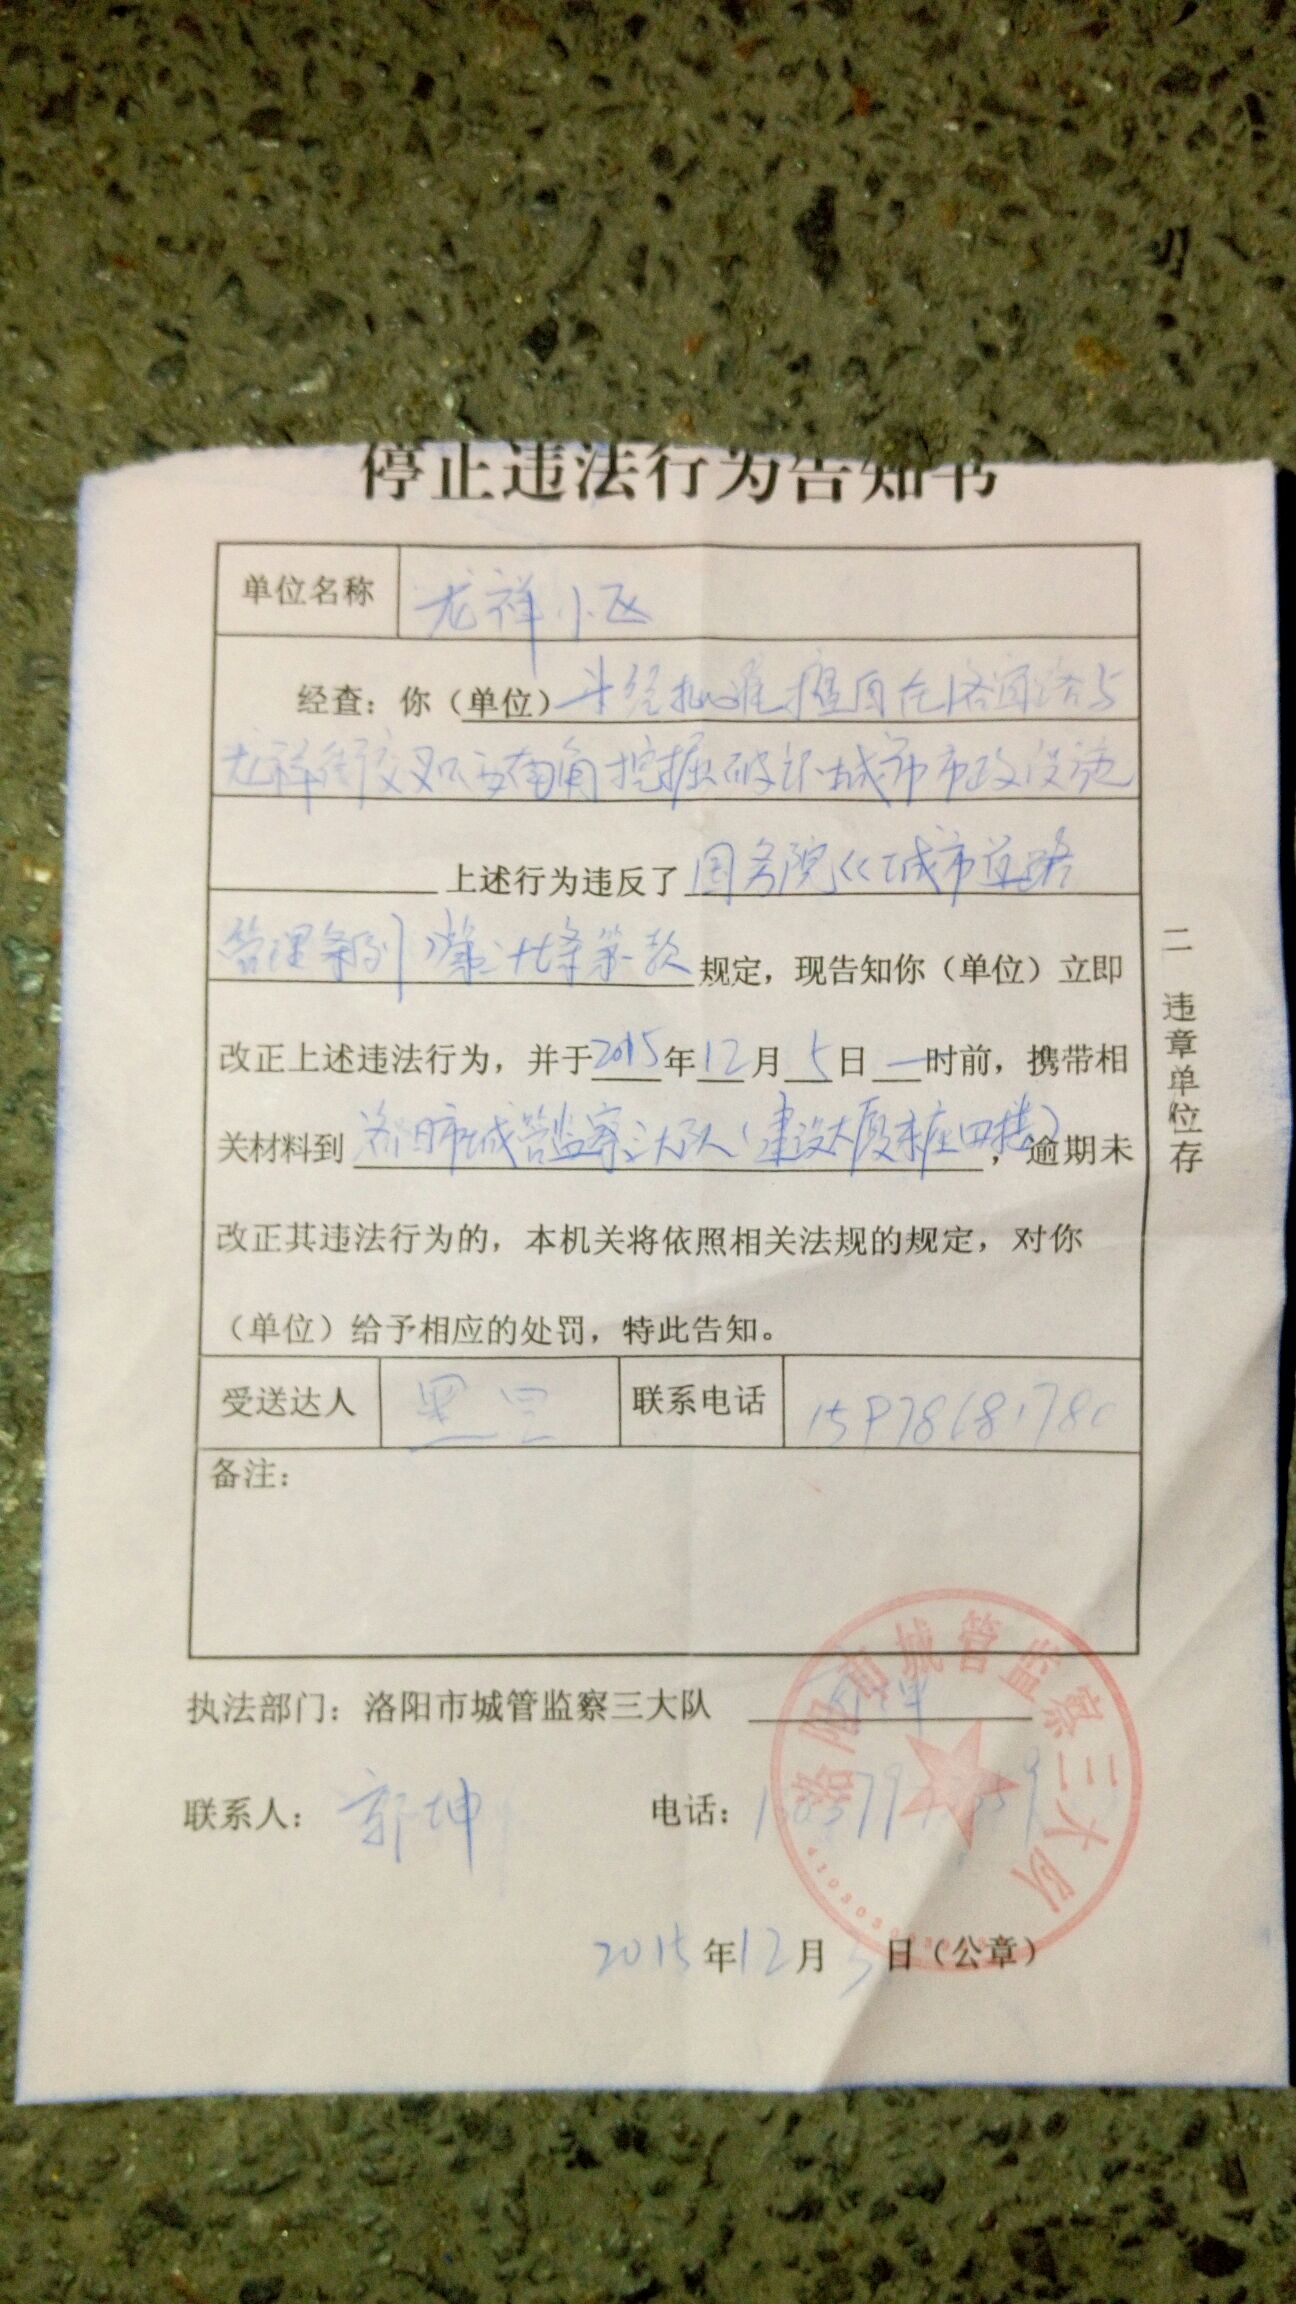 停止违法行为告知书
单位名称 龙祥小区
经查：你（单位）未经批准擅自在洛宜路与
龙祥街交叉口西南角挖掘破坏城市市政设施
上述行为违反了国务院《城市道路
管理条例》第二十七条第一款规定，现告知你（单位）立即
改正上述违法行为，并于2015年12月5日一时前，携带相
关材料到洛阳市城管监察三大队（建设大厦东座四楼），逾期未
改正其违法行为的，本机关将依照相关法规的规定，对你
（单位）给予相应的处罚，特此告知。
受送达人 联系电话
备注：
二 违章单位存
执法部门：洛阳市城管监察三大队
联系人：郭坤 电话：
2015年12月5日（公章）
洛阳市城管监察三大队